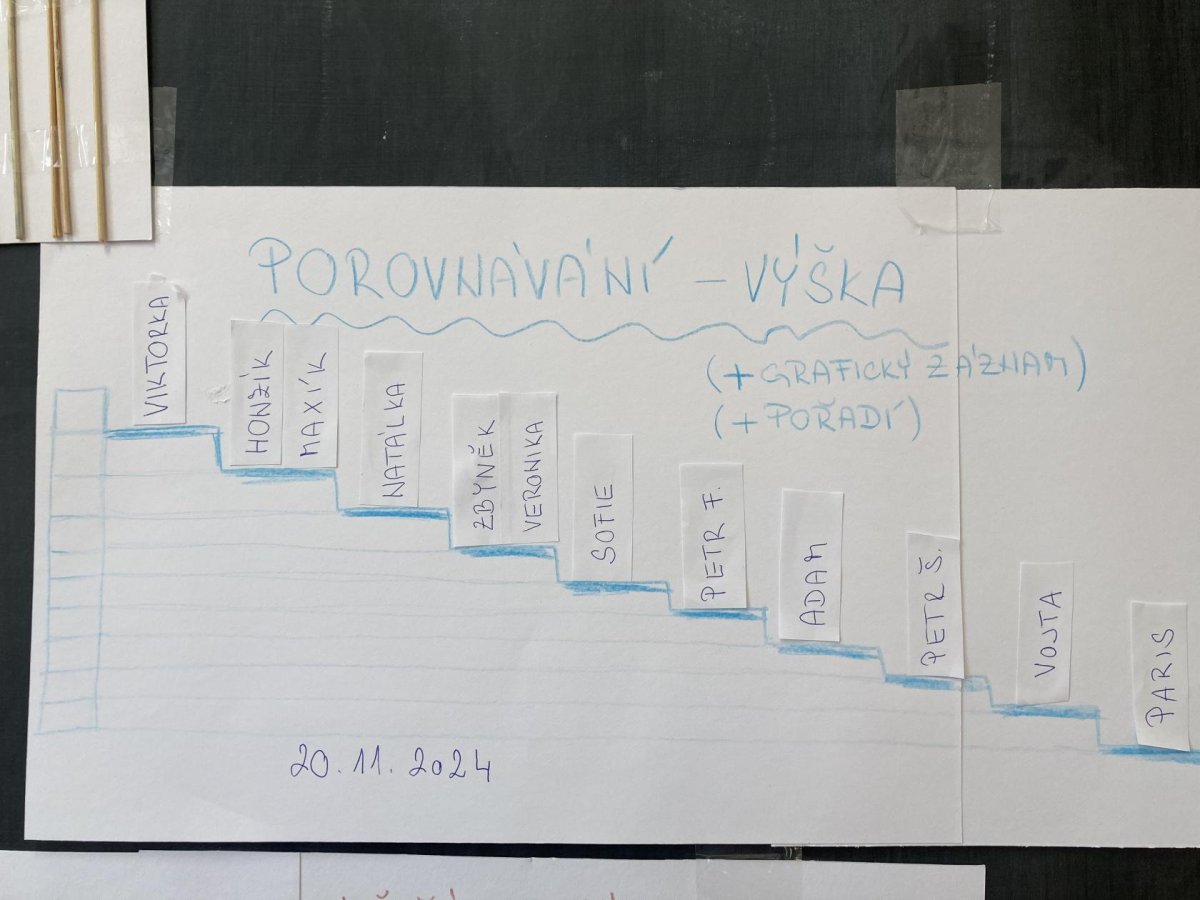 POROVNÁVÁNÍ – VÝŠKA
(+ GRAFICKÝ ZÁZNAM)
(+ POŘADÍ)
VIKTORKA
HONZÍK
MAXÍK
NATÁLKA
ZBYNĚK
VERONIKA
SOFIE
PETR F.
ADAM
PETR Š.
VOJTA
PARIS
20.11.2024